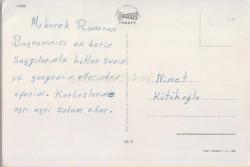 VAN
Mübarek Ramazan
Bayramınızı en derin
Saygılarımla kutlar senin
ve yengenin ellerinden
öperim. Kardeşlerime
ayrı ayrı selam eder.
Nimet
Kütükoğlu